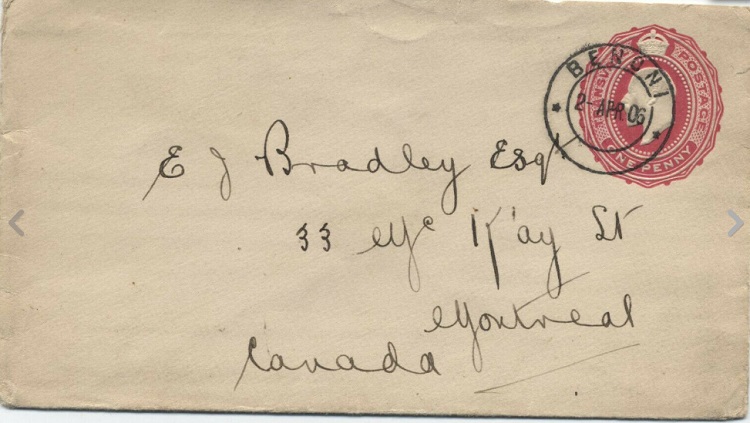 BENONI
2-APR.06
TRANSVAAL POSTAGE
ONE PENNY
E J Bradley Esqr
33 Mc Kay St
Montreal
Canada